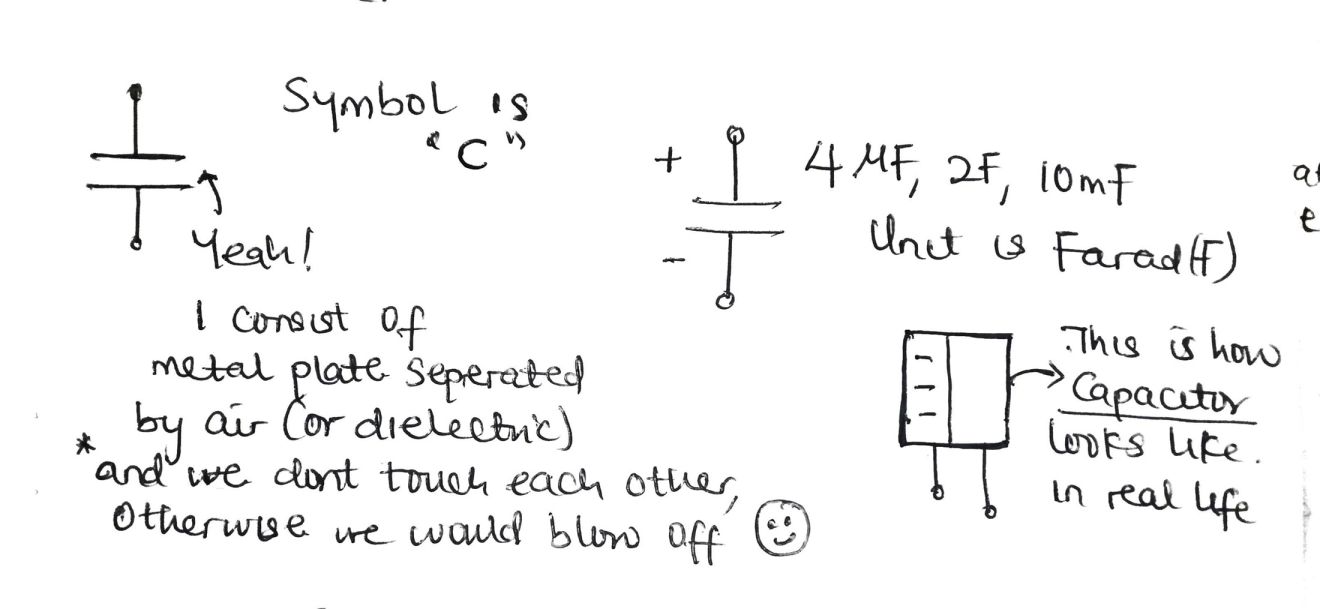 Symbol is
"C"
Yeah!
I consist of
metal plate seperated
by air (or dielectric)
* and we dont touch each other,
Otherwise we would blow off
+
-
4 μF, 2F, 10mF
Unit is Farad(F)
This is how
Capacitor
looks like.
in real life